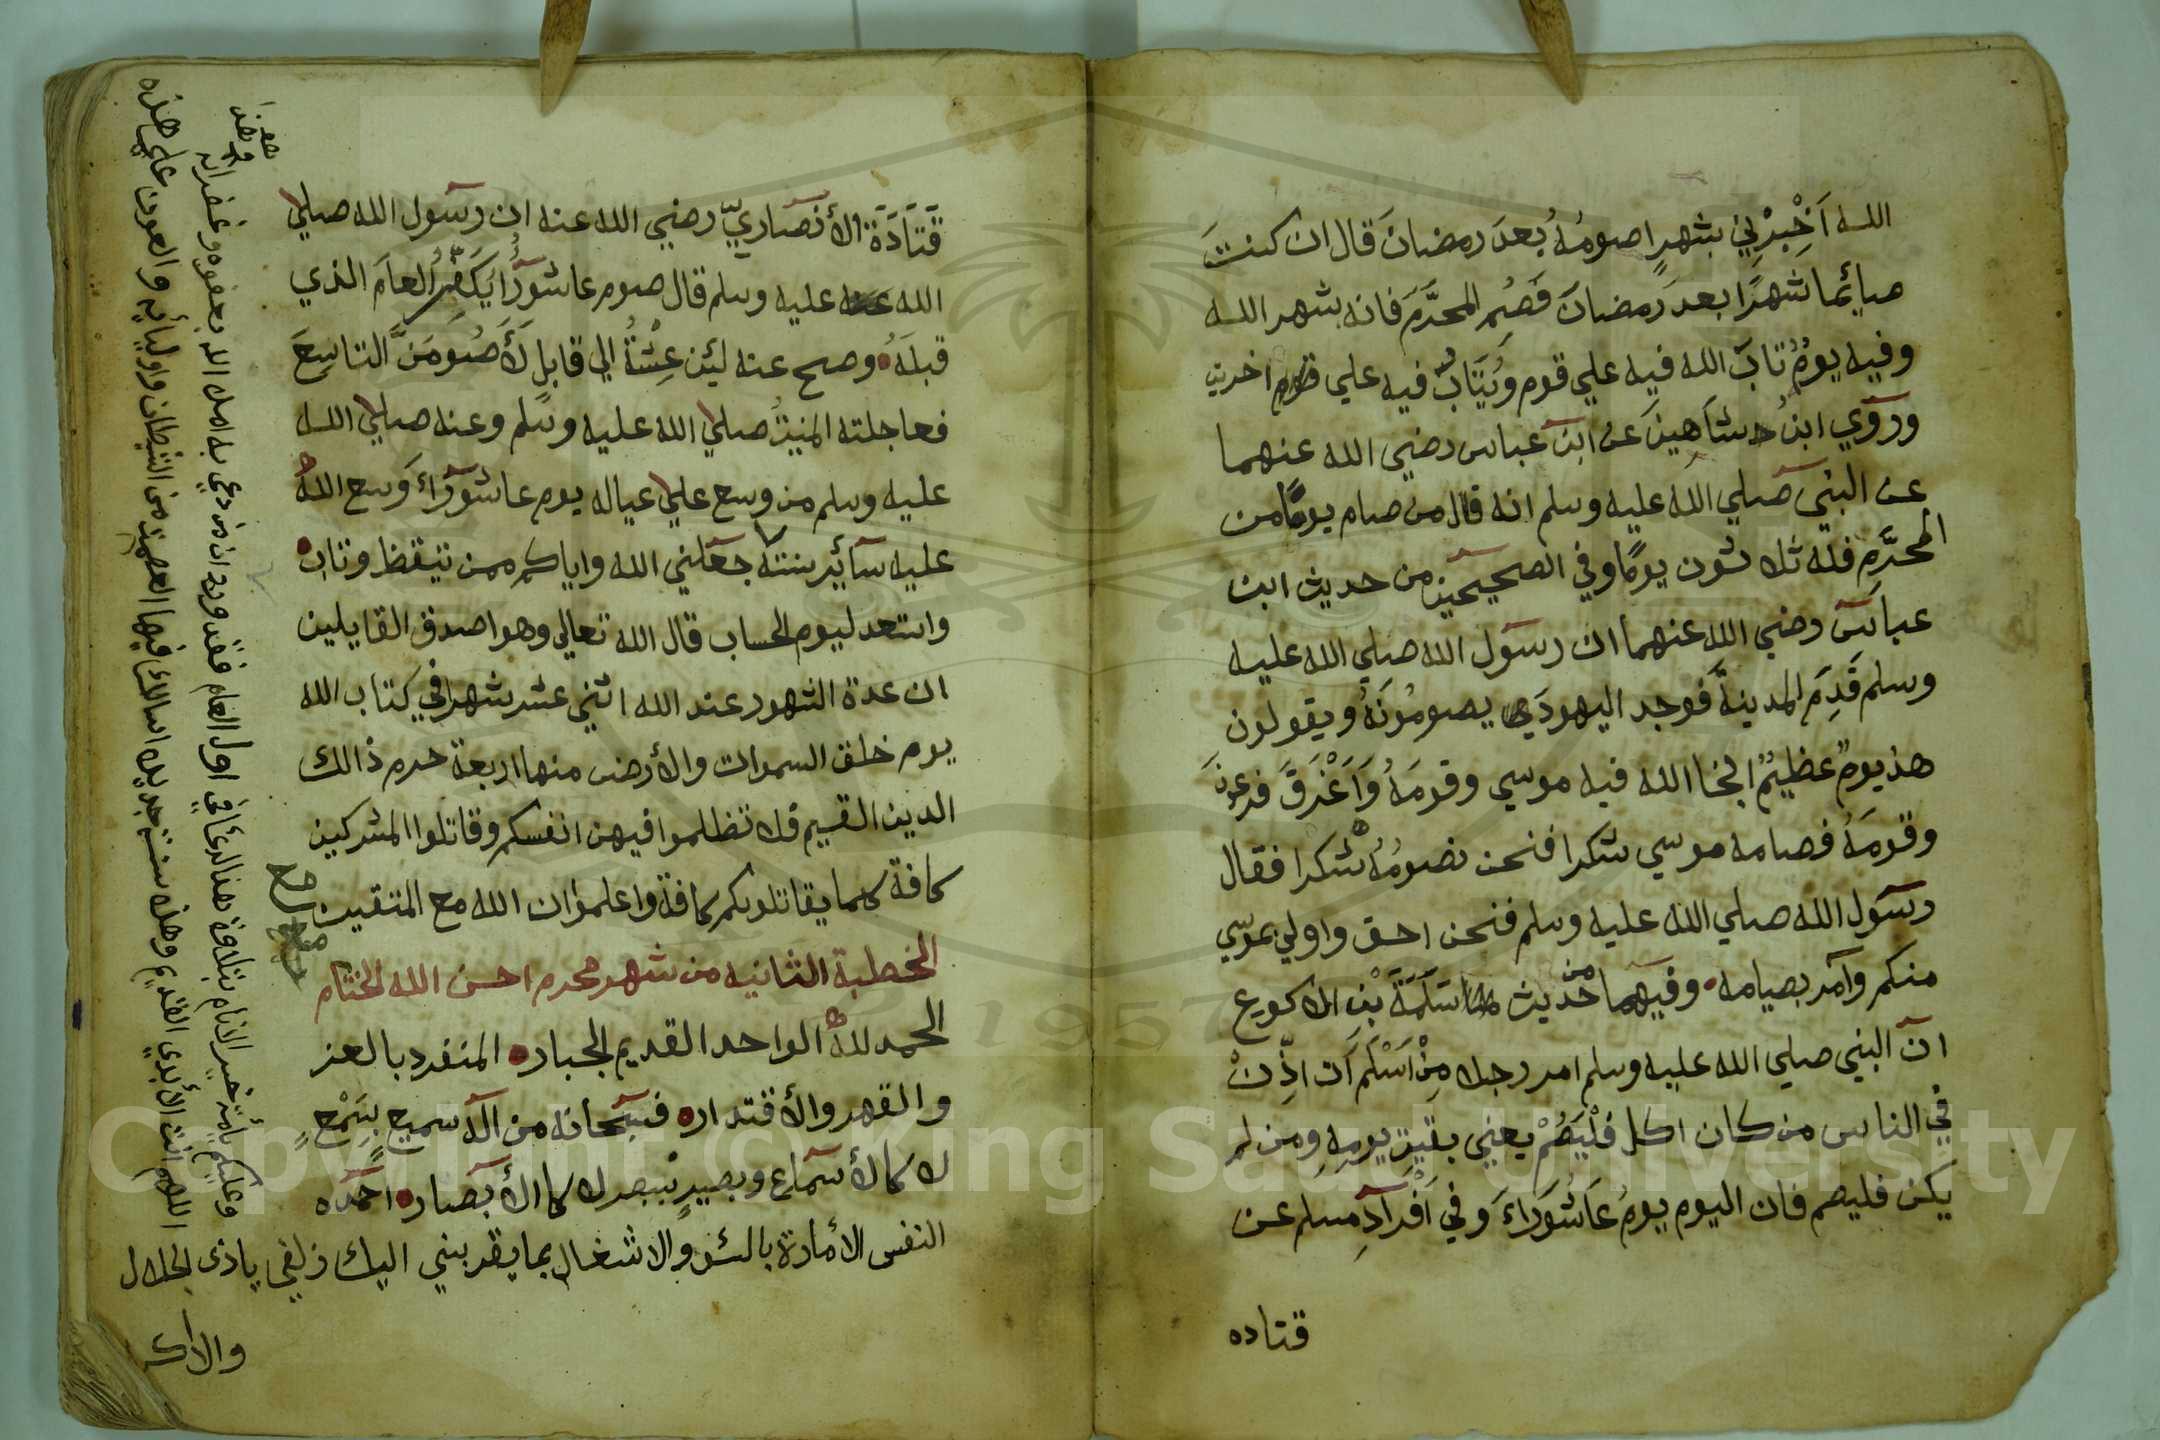 الله اَخْبِرْنِي بشهرٍ اصومُهُ بُعدَ رمضانَ قال ان كنتَ
صائِما شهرًا بعد رَمضانَ فَصُمِ المحرَّمَ فانه شهر الله
وفيه يومٌ تابَ الله فيه علي قوم ويُتَابُ فيه علي قوم اخرين
وروَي ابنُ شاَهينَ عن ابن عباس رضي الله عنهما
عن النبي صلي الله عليه وسلم انه قال من صام يومًا من
المحرَّمِ فله ثلاثون يومًا وفي الصحيحين من حديث ابن
عباس رضي الله عنهما ان رسول الله صلي الله عليه
وسلم قَدِمَ المدينةَ فوجد اليهودَ يصومُونَهُ ويقولون
هذ يومٌ عظيمٌ انجا الله فيه موسي وقومَهُ وَاَغْرَقَ فرعونَ
وقومَهُ فصامه موسي شكرا فنحن نصومُهُ شكرا فقال
رسول الله صلي الله عليه وسلم فنحن احق واولي بموسي
منكم وآمر بصيامه وفيهما من حديث سَلَمَةَ بْن الاكوع
ان النبي صلي الله عليه وسلم امر رجلا مِنْ اَسْلَمَ اَن اذِّنْ
في الناس من كان اكل فلْيَصُمْ يعني بقية يومِهِ ومن لم
يكن فليصم فان اليوم يومُ عَاشُورَاءَ وفي اَفْرَادِ مسلم عن
قتاده
قَتَادَةَ الأنصاريّ رضي الله عنه ان رسول الله صلي
الله عليه وسلم قال صوم عاشُورَا يُكَفِّرُ العامَ الذي
قبلَهُ وصح عنه لئِن عِشْتُ الي قابلٍ لَأَصُومَنَّ التاسِعَ
فعاجلته المنيةُ صلي الله عليه وسلم وعنه صلي الله
عليه وسلم من وسع علي عياله يوم عاشوراءَ وَسع اللهُ
عليه سَائِر سنته جعلني الله واياكم ممن تيقظ وتاب
واستعد ليوم الحساب قال الله تعالي وهو اصدق القايلين
ان عدة الشهور عند الله اثني عشر شهرا في كتاب الله
يوم خلق السموات والأرض منها اربعة حرم ذالك
الدين القيم فلا تظلموا فيهن انفسكم وقاتلوا المشركين
كافة كما يقاتلونكم كافة واعلموا ان الله مع المتقين
الخطبة الثانيه من شهر محرم احسن الله الختام
الحمد للهِ الواحد القديم الجبار المنفرد بالعز
والقهر والأقتدار فسبحانه من اله سميع بِسَمْعٍ
لا كالأسماع وبصيرٍ ببصر لا كالأبصار احمده
النفس الأمارة بالسوء والاشغال بما يقربني اليك زلفي ياذي الجلال
والاك
وعليكم بأمة خير الانام بتلاوة هذا الدعاء في اول العام فقد ورد ان من دعي به امده الله بعفوه وغفرانه
اللهم انت الأبدي القديم وهذه سنة جديده اسالك فيها العصمة من الشيطان واوليائه والعون علي هذه
صح